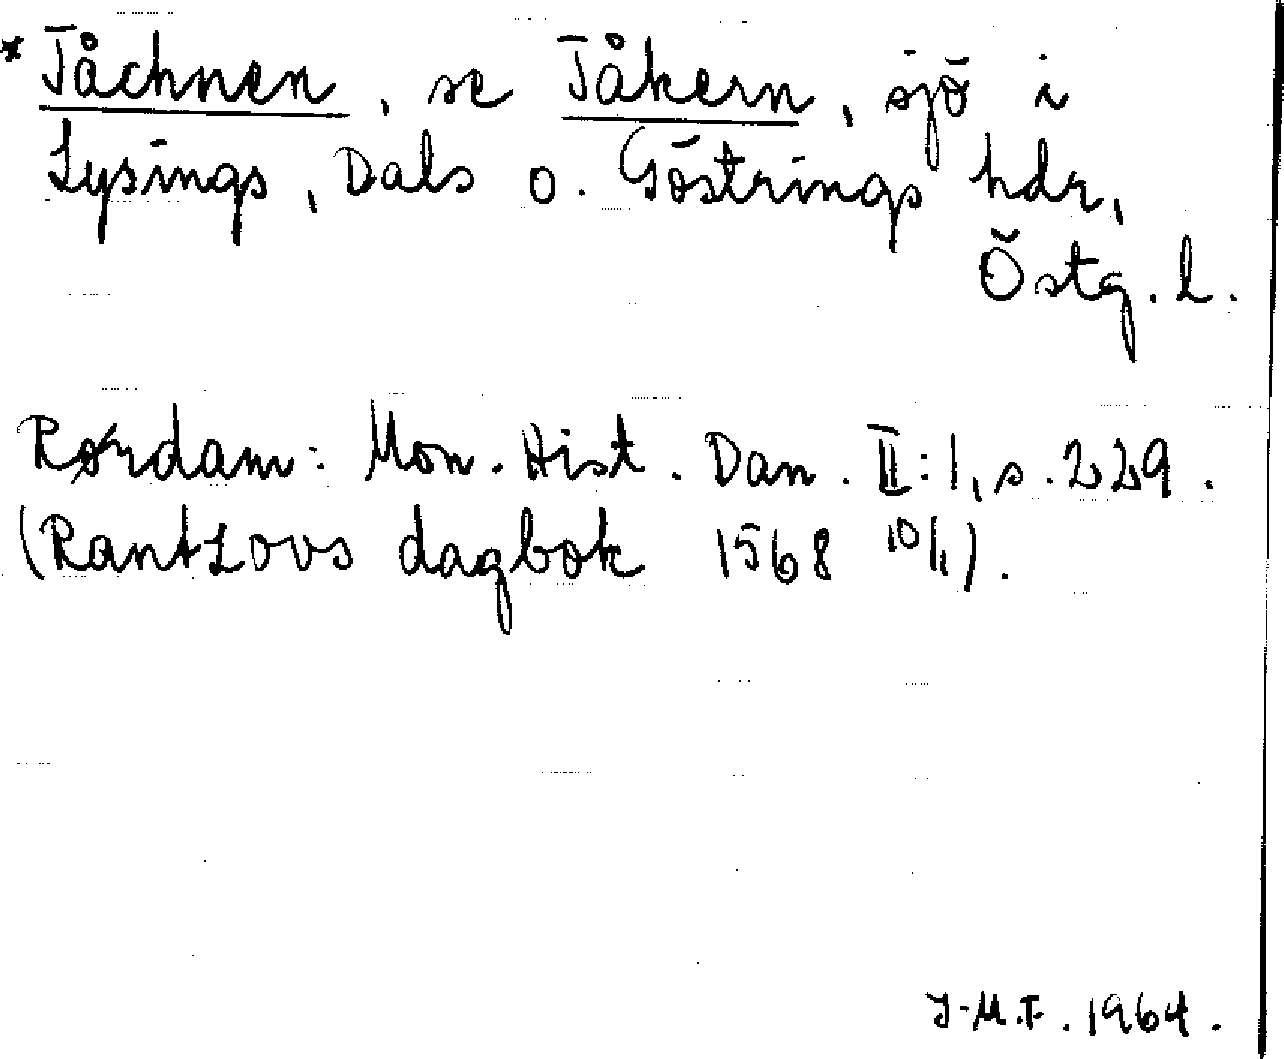 * Tåchnen, se Tåkern, sjö i
Lysings, Dals o. Göstrings hdr,
Östg. l.
Rørdam: Mon. Hist. Dan. II:1, s. 229.
(Rantzovs dagbok 1568 10/1).
J-M.F. 1964.